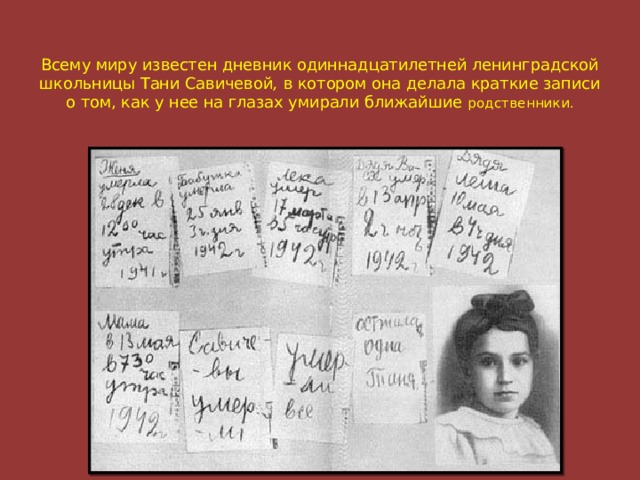 Всему миру известен дневник одиннадцатилетней ленинградской
школьницы Тани Савичевой, в котором она делала краткие записи
о том, как у нее на глазах умирали ближайшие родственники.
Женя
умерла
28 дек в
12 00 час
утра
1941 г
Бабушка
умерла
25 янв
3 ч. дня
1942 г
Лека
умер
17 марта
в 5 час утр
1942 г
Дядя Ва-
ся умер
в 13 апр
2 ч ноч
1942 г
Дядя
Леша
10 мая
в 4 ч дня
1942
Мама
в 13 мая
в 7 30
час
утра
1942 г
Савиче-
-вы
умер-
-ли
умер
-ли
все
осталась
одна
Таня